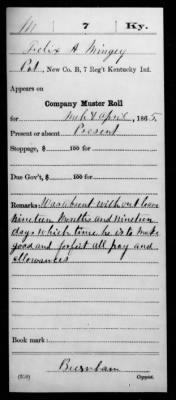 M | 7 | Ky.
Felix A. Mingey
Pvt., New Co. B, 7 Reg't Kentucky Inf.
Appears on
Company Muster Roll
for Mch & April, 1865.
Present or absent Present
Stoppage, $ 100 for
Due Gov't, $ 100 for
Remarks: Was absent without leave
nineteen months and nineteen
days which time he is to make
good and forfeit all pay and
allowances
Book mark:
Burnham
(358) Copyist.